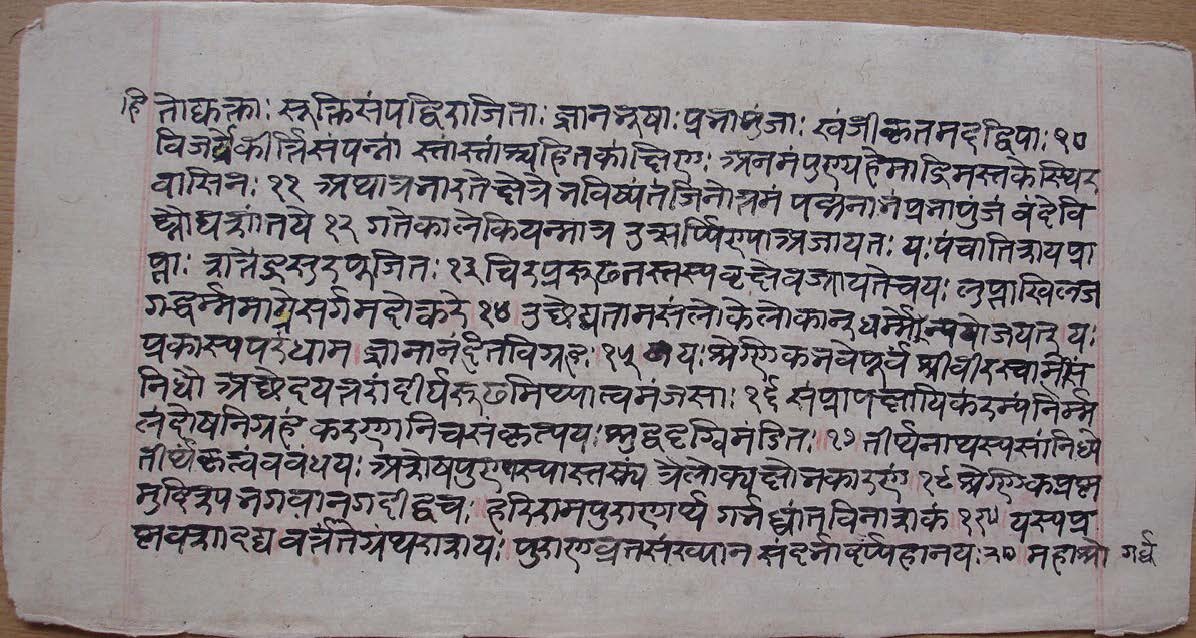 हि तोद्यक्ताः सूक्तिसंपद्विराजिताः ज्ञानभूषाः प्रभापुंजाः खंजीकृतमदद्विपाः १०
विजर्यैकीर्त्तिसंपन्ना स्तांस्तांत्र्यहितकांक्षिणः अनमंपुण्यहेमाद्रिमस्तकेस्थिर
वासिनः ११ अथात्रभारतेक्षेत्रे भविष्यंतंजिनोत्तमं पद्मनाभंप्रभापुंजं वंदेवि
घ्नौघशांतये १२ गतेकालेकियन्मात्र उत्सर्प्पिण्पाअजायतः यःपंचातिशयप्रा
प्तः शतेंद्रसुरपूजितः १३ चिरप्ररूढतस्तस्पवृक्षेवज्रायतेचयः लुप्ताखिलज
गद्धर्म्ममार्गेसर्गमदोकरे १४ उच्छेद्यतामसंलोकेलोकान्धर्म्मेन्ययोजयत् यः
प्रकास्पपरंधाम ज्ञानानंदैतविग्रहः १५ यः श्रेणिकभवेपूर्वं श्रीवीरस्वामीसं
निधौ अछेदयत्तरांदीर्घरूढमिथ्यात्वमंजसाः १६ संप्राप्पक्षायिकंरम्पंनिर्म्म
लंदोषनिग्रहं करणानिचसंकृत्पयः शुद्धदृग्विमंडितः १७ तीर्थनाथस्पसांनिध्ये
तीर्थकृत्वंबबंधयः अशेषपुण्यस्पास्तस्य त्रैलोक्यक्षोभकारणं १८ श्रेणिकप्रश्न
मुद्दिश्प भगवान्गदीद्वचः हरिरामपुराणार्प्प गर्भध्वांतविनाशकं १९ यस्पप्र
श्नवशादद्य वर्त्ततेग्रंथराशयः पुराणव्रतसंख्पान सदर्भादर्प्पहानयः २० महाश्रो गर्ध